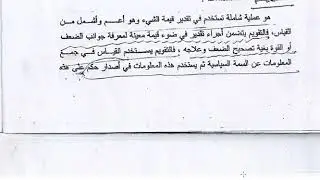 هو عملية شاملة تستخدم في تقدير قيمة الشيء وهو أعـم وأشمل مـن
القياس، فالتقويم يتضمن أجراء تقدير في ضوء قيمة معينة لمعرفة جوانب الضعف
أو القوة بغية تصحيح الضعف وعلاجه ، فالتقويم يستخدم القيـاس فـي جمـع
المعلومات عن السمة السياسية ثم يستخدم هذه المعلومات في أصدار حكم على هذه